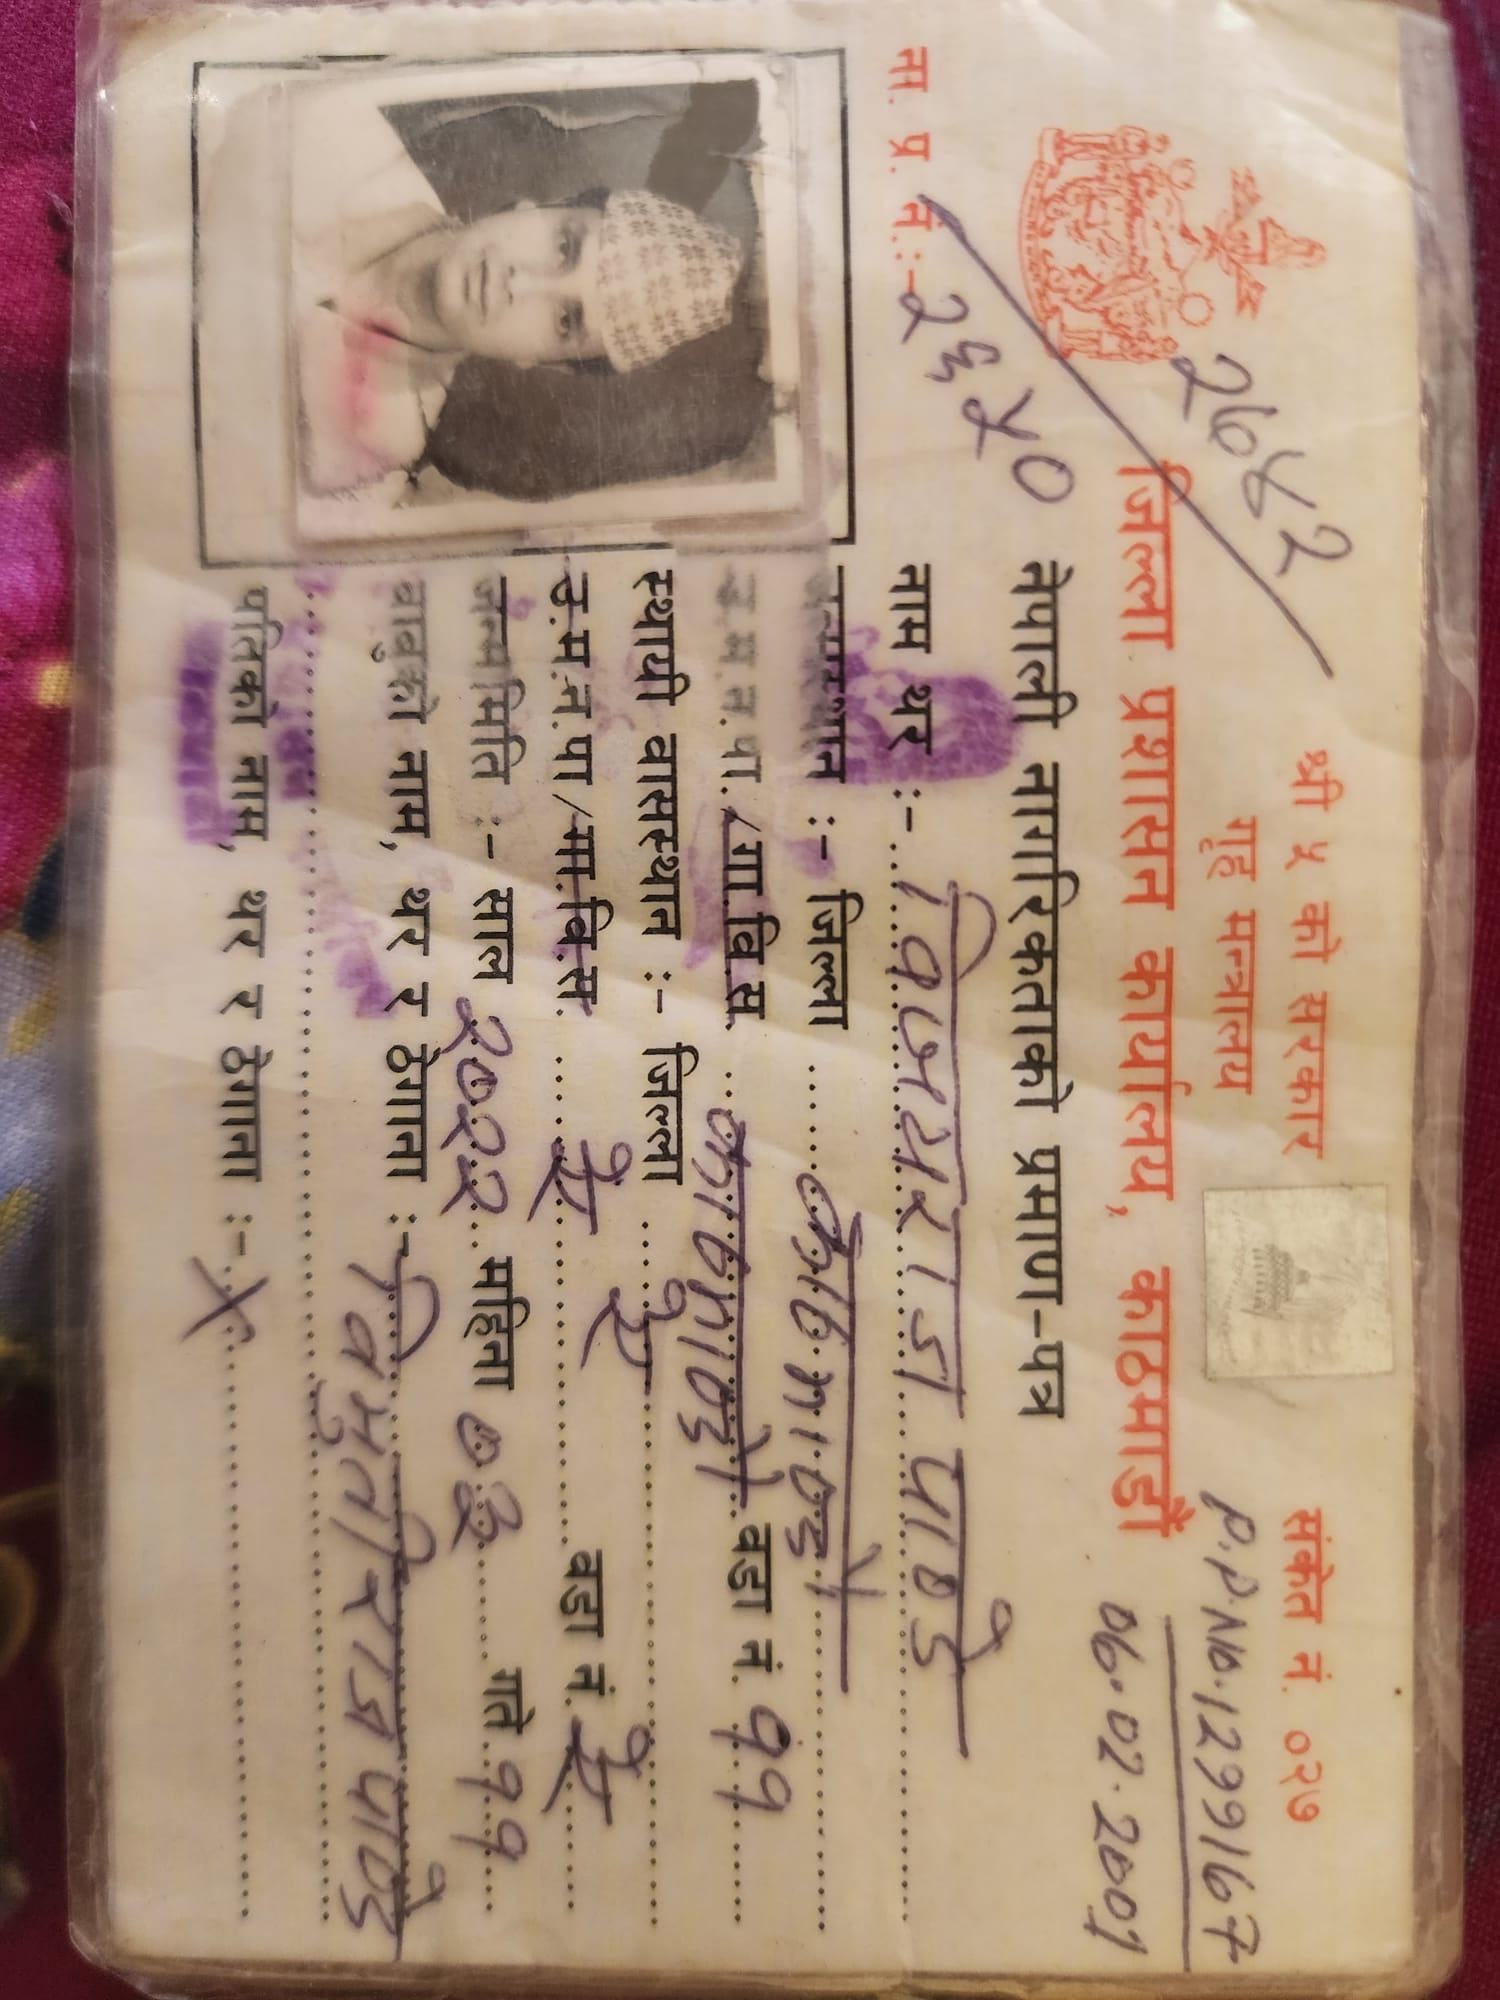 श्री ५ को सरकार
गृह मन्त्रालय
संकेत नं. ०२७
P.P.No. 1299167
06.02.2001
जिल्ला प्रशासन कार्यालय, काठमाडौं
नेपाली नागरिकताको प्रमाण-पत्र
ना. प्र. नं.:-
नाम थर :- विजयराज पाण्डे
जन्मस्थान :- जिल्ला काठमाण्डौ
उ.म.न.पा./गा.वि.स. काठमाण्डौ वडा नं. ११
स्थायी वासस्थान :- जिल्ला ऐ
उ.म.न.पा/गा.वि.स ऐ वडा नं. ऐ
जन्ममिति :- साल २०२२ महिना गते ११
बाबुको नाम, थर र ठेगाना :- विभुतीराज पाण्डे
पतिको नाम, थर र ठेगाना :- X